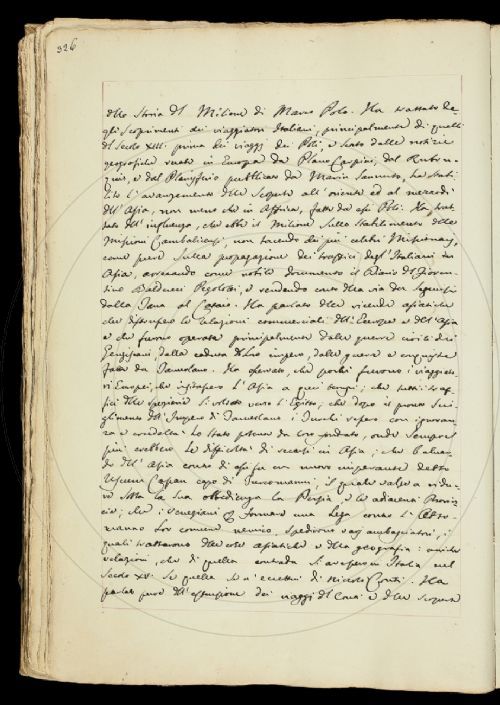 326
allo Storia del Milione di Marco Polo. Ha trattato de-
gli Scoprimenti dei viaggiatori Italiani, principalmente di quelli
del Secolo XIII. prima dei viaggi dei Poli, e stato delle notizie
geografiche recate in Europa da Plano Carpini, dal Rubru-
quis, e dal Planisferio pubblicato da Marin Sanuto, ha stabi-
lito l'avanzamento delle Scoperte all'oriente ed al mezzodì
dell'Asia, non meno che in Affrica, fatte da essi Poli. Ha trat-
tato dell'influenza, che ebbe il Milione sullo Stabilimento delle
Missioni Cambalicensi, non tacendo dei più celebri Missionarj,
come pure sulla propagazione dei traffici degl'Italiani in
Asia, arrecando come nobile documento il Diario del Fioren-
tino Balducci Pegolotti, e rendendo conto della via da seguirsi
dalla Tana al Cataio. Ha parlato delle vicende asiatiche
che disturparono le relazioni commerciali dell'Europa e dell'Asia
e che furono operate principalmente dalle guerre civili dei
Gengiscani, dalla caduta del loro impero, dalle guerre e conquiste
fatte da Tamerlano. Ha operato, che pochi furono i viaggiato-
ri Europei, che visitassero l'Asia a quei tempi; che tutti i traf-
fici delle spezierie si voltato verso l'Egitto; che dopo il pronto scio-
glimento dell'Impero di Tamerlano i Turchi
e crudeltà lo stato potevano da loro fondato, onde sempre
più crebbero le difficoltà di recarsi in Asia; che
do dell'Asia contro di essi fu un nuovo imperante detto
Ussum Cassan capo di Turcomanni; il quale valse a ridu-
re sotto la sua obbedienza la Persia, e le adiacenti Provin-
cie; che i Veneziani per formare una Lega contro l'Otto-
manno loro comune nemico, spedirono varj ambasciatori, i
quali trattarono delle cose asiatiche e della geografia: uniche
relazioni, che di quella contrada si avessero in Italia nel
Secolo XV. se quella se n'eccettui di Niccolò Conti. Ha
parlato pure dell'estensione dei viaggi del Conti e delle scoperte